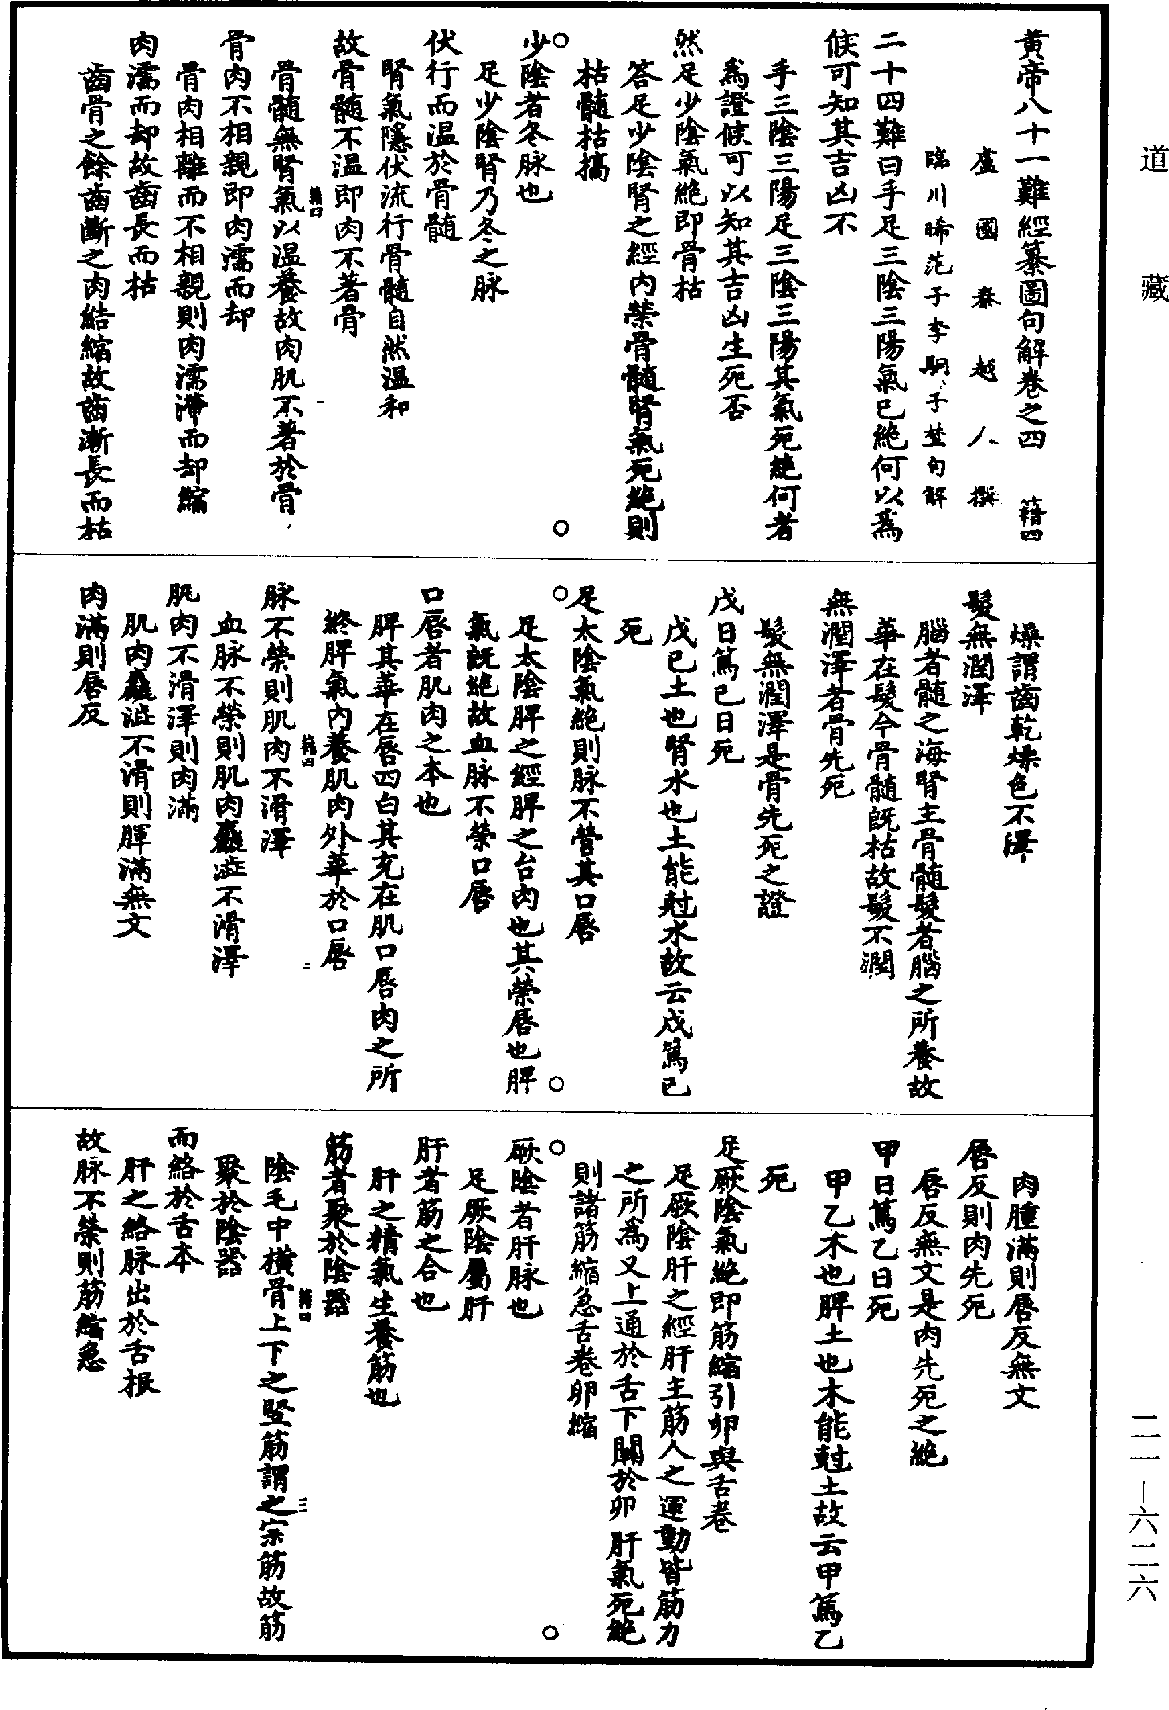 道藏
黄帝八十一難經纂圖句解卷之四　籍四
盧國秦越人撰
臨川晞范子李駉子埜句解
二十四難曰手足三陰三陽氣已絶何以爲
候可知其吉凶不
手三陰三陽足三陰三陽其氣死絶何者
爲證候可以知其吉凶生死否
然足少陰氣絶即骨枯
答足少陰腎之經内榮骨髓腎氣死絶則
枯髓枯槁
少陰者冬脉也
足少陰腎乃冬之脉
伏行而温於骨髓
腎氣隱伏流行骨髓自然温和
故骨髓不温即肉不著骨
骨髓無腎氣以温養故肉肌不著於骨
骨肉不相親即肉濡而却
骨肉相離而不相親則肉濡滯而却縮
肉濡而却故齒長而枯
齒骨之餘齒齗之肉結縮故齒漸長而枯
燥謂齒乾燥色不澤
髮無潤澤
腦者髓之海腎主骨髓髮者腦之所養故
華在髮今骨髓既枯故髮不潤
無潤澤者骨先死
髮無潤澤是骨先死之證
戊日篤己日死
戊己土也腎水也土能尅水故云戊篤己
死
足太陰氣絶則脉不營其口唇
足太陰脾之經脾之台肉也其榮唇也脾
氣既絶故血脉不榮口唇
口唇者肌肉之本也
脾其華在唇四白其充在肌口唇肉之所
終脾氣内養肌肉外華於口唇
脉不榮則肌肉不滑澤
血脉不榮則肌肉麤澁不滑澤
肌肉不滑澤則肉滿
肌肉麤澁不滑則膧滿無文
肉滿則唇反
肉腫滿則唇反無文
唇反則肉先死
唇反無文是肉先死之絶
甲日篤乙日死
甲乙木也脾土也木能尅土故云甲篤乙
死
足厥陰氣絶即筋縮引卵與舌卷
足厥陰肝之經肝主筋人之運動皆筋力
之所爲又上通於舌下關於卵肝氣死絶
則諸筋縮急舌卷卵縮
厥陰者肝脉也
足厥陰屬肝
肝者筋之合也
肝之精氣生養筋也
筋者聚於陰器
陰毛中横骨上下之竪筋謂之宗筋故筋
聚於陰器
而絡於舌本
肝之絡脉出於舌根
故脉不榮則筋縮急
二一—六二六